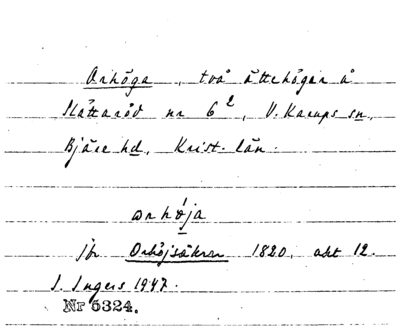 Orhöga, två ättehögar å
Slättaröd nr 6², V. Karups sn,
Bjäre hd, Krist. län.
orhója
jfr Orhöjsåkrar 1820, akt 12.
I. Ingers 1947.
Nr 5324.